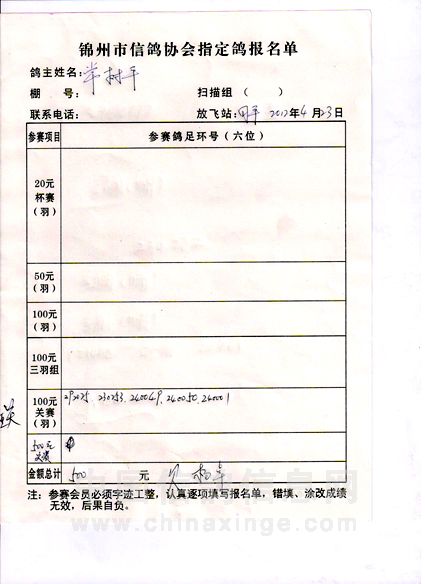 锦州市信鸽协会指定鸽报名单
鸽主姓名：常树平
棚 号： 扫描组（ ）
联系电话： 放飞站： 2012年4月23日
参赛项目 参赛鸽足环号（六位）
20元
杯赛
（羽）
50元
（羽）
100元
（羽）
100元
三羽组
100元
关赛
（羽）
230253. 240049. 240050. 240001
500元
金额总计 500 元
注：参赛会员必须字迹工整，认真逐项填写报名单，错填、涂改成绩
无效，后果自负。
中国信鸽信息网
www.chinaxinge.com